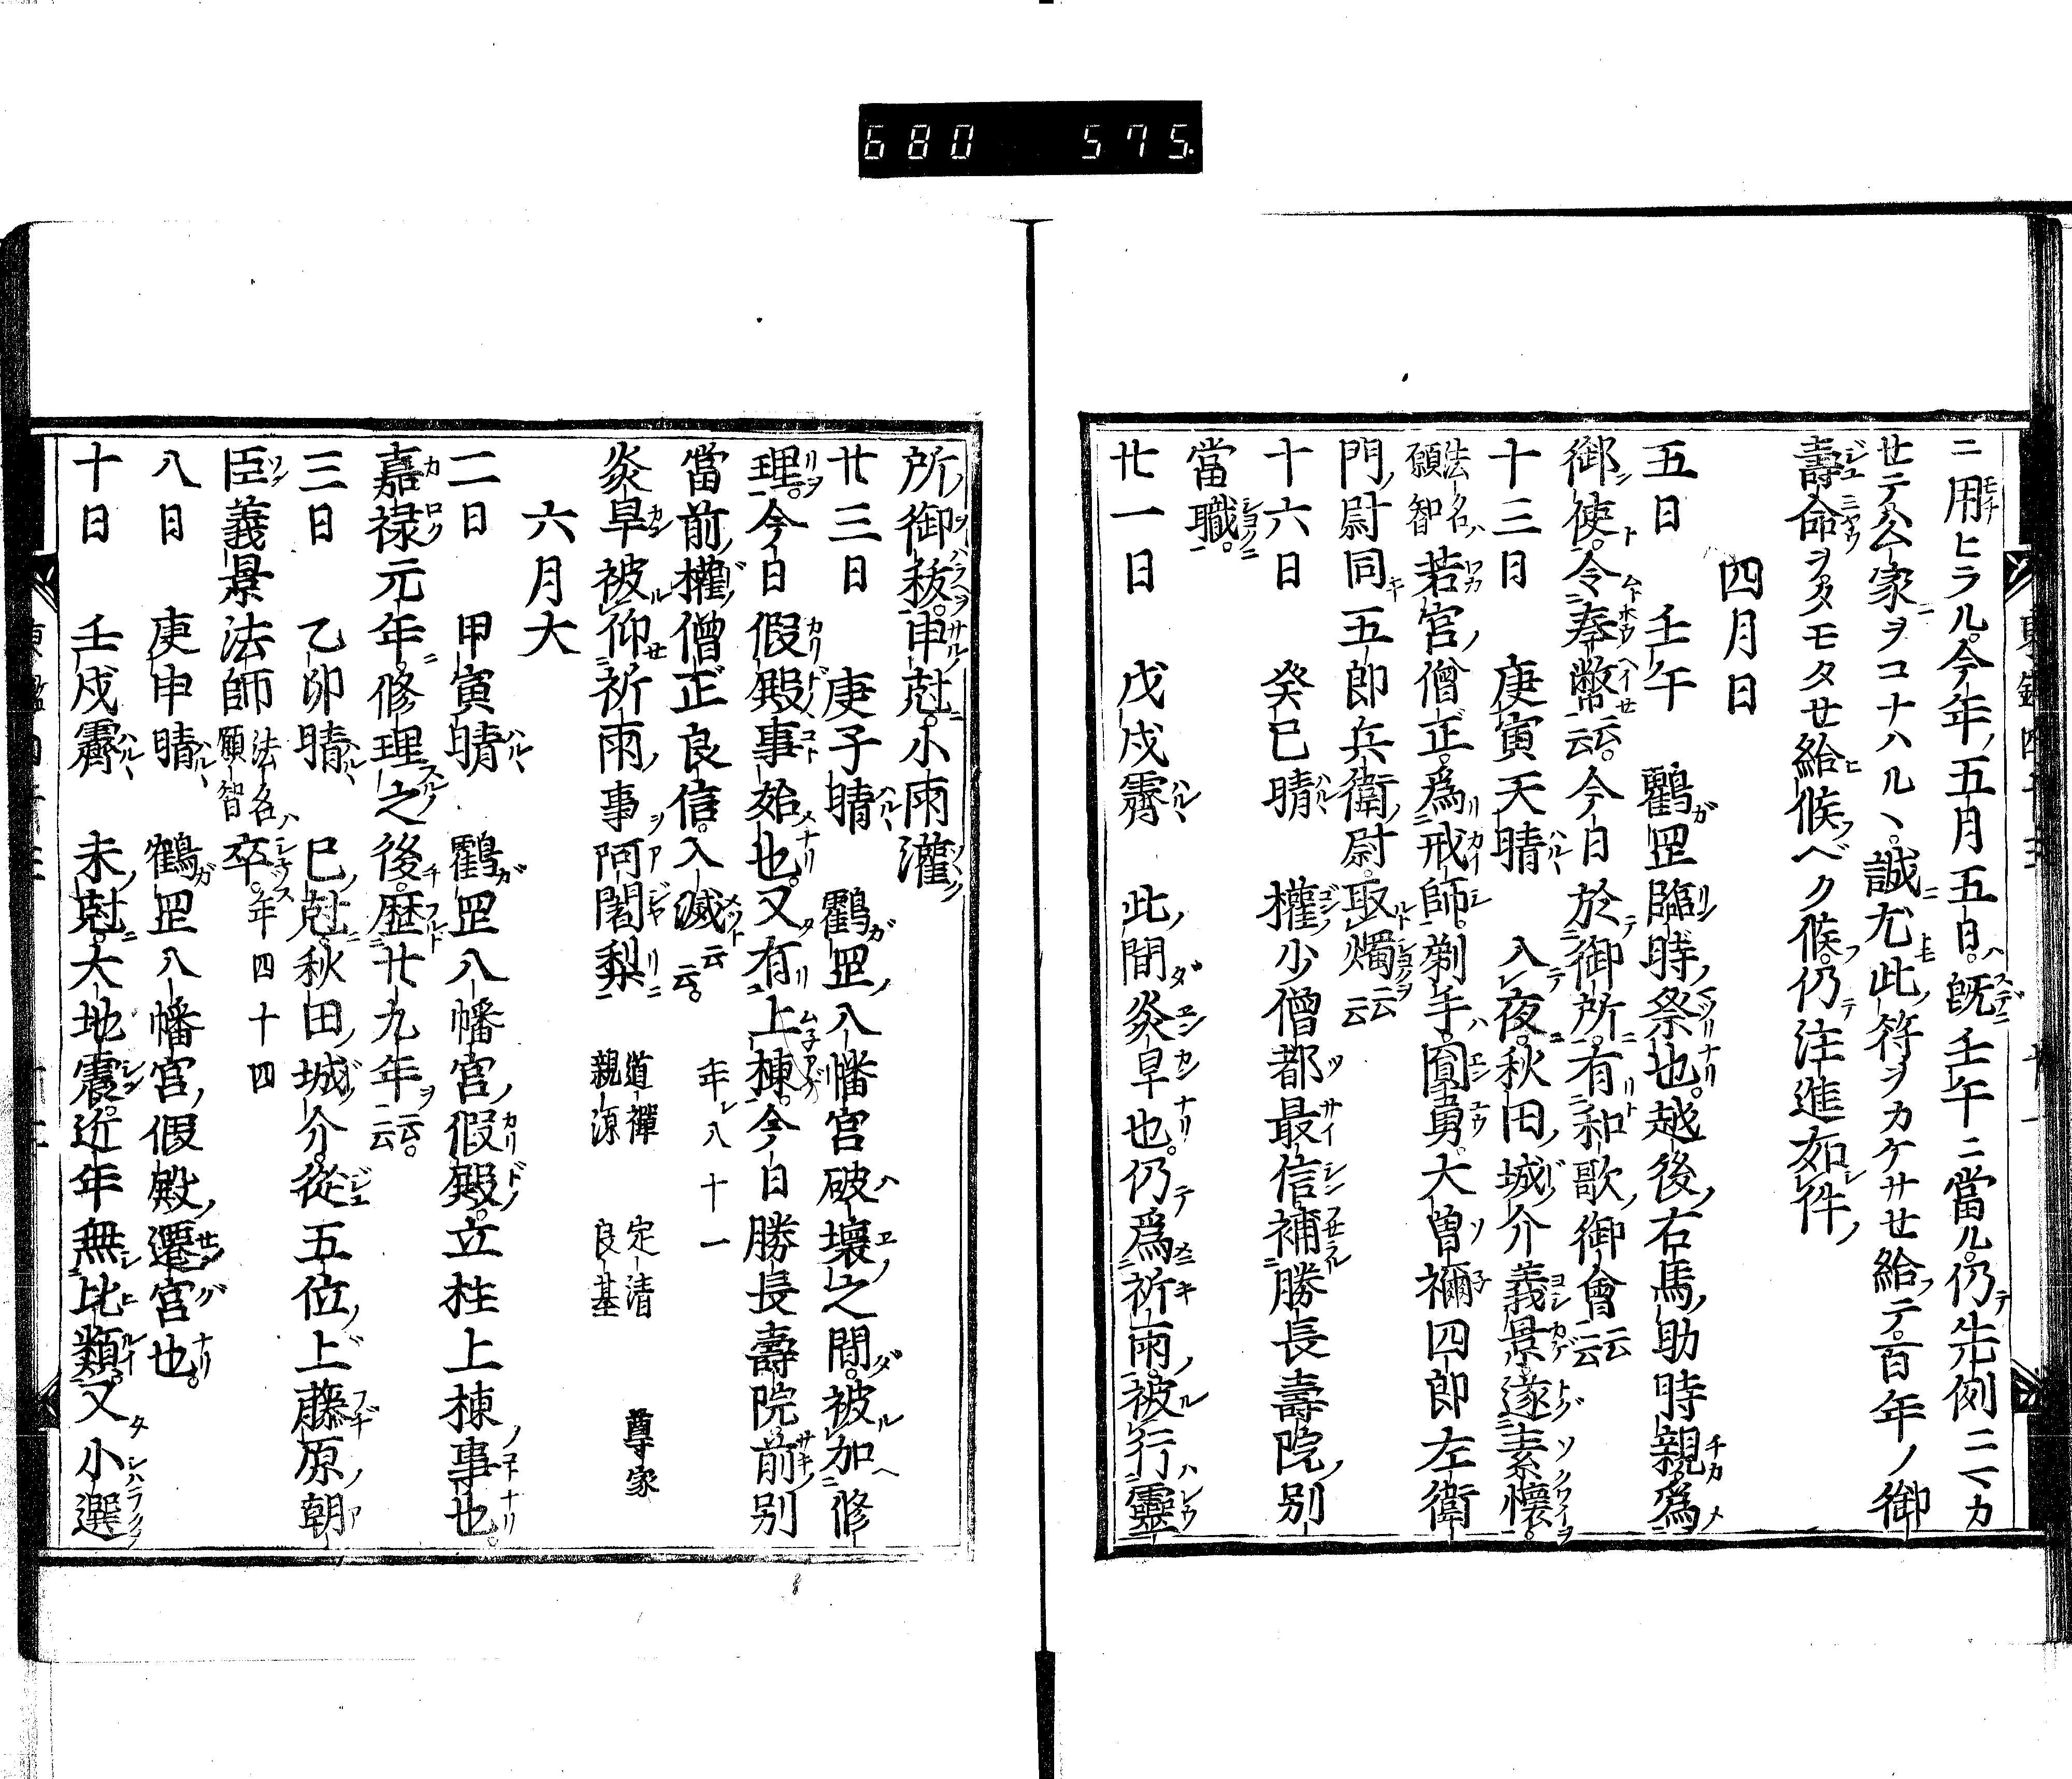 680 575.
ニ用ヒラル。今年五月五日。既壬午ニ當ル。仍先例ニマカ
セテ。公家ヲコナハル丶。誠尤此符ヲカケサセ給テ。百年ノ御
壽命ヲタモタセ給候ベク候。仍注進如件
四月日
五日 壬午 鸖罡臨時祭也。越後右馬助時親爲
御使。令奉幣云云。今日於御所。有和歌御會云云
十三日 庚寅天晴 入夜。秋田城介義景遂素懷。
法名願智 若宮僧正。爲戒師。剃手圓勇。大曽禰四郎左衛
門尉同五郎兵衛尉。取燭云云
十六日 癸巳晴 權少僧都最信補勝長壽院別
當職。
廿一日 戊戌霽 此間炎旱也。仍爲祈雨。被行靈
所御秡。申尅。小雨灌
廿三日 庚子晴 鸖罡八幡宮破壞之間。被加修
理。今日假殿事始也。又有上棟。今日勝長壽院前別
當前權僧正良信。入滅云云。年八十一
炎旱被仰祈雨事阿闍梨 道禪 親源 定清 良基 尊家
六月大
二日 甲寅晴 鸖罡八幡宮假殿。立柱上棟事也。
嘉禄元年。修理之後。歴廿九年云云。
三日 乙卯晴 巳尅。秋田城介。從五位上藤原朝
臣義景法師法名願智卒。年四十四
八日 庚申晴 鶴罡八幡宮假殿遷宮也。
十日 壬戌霽 未尅。大地震。近年無比類。又小選